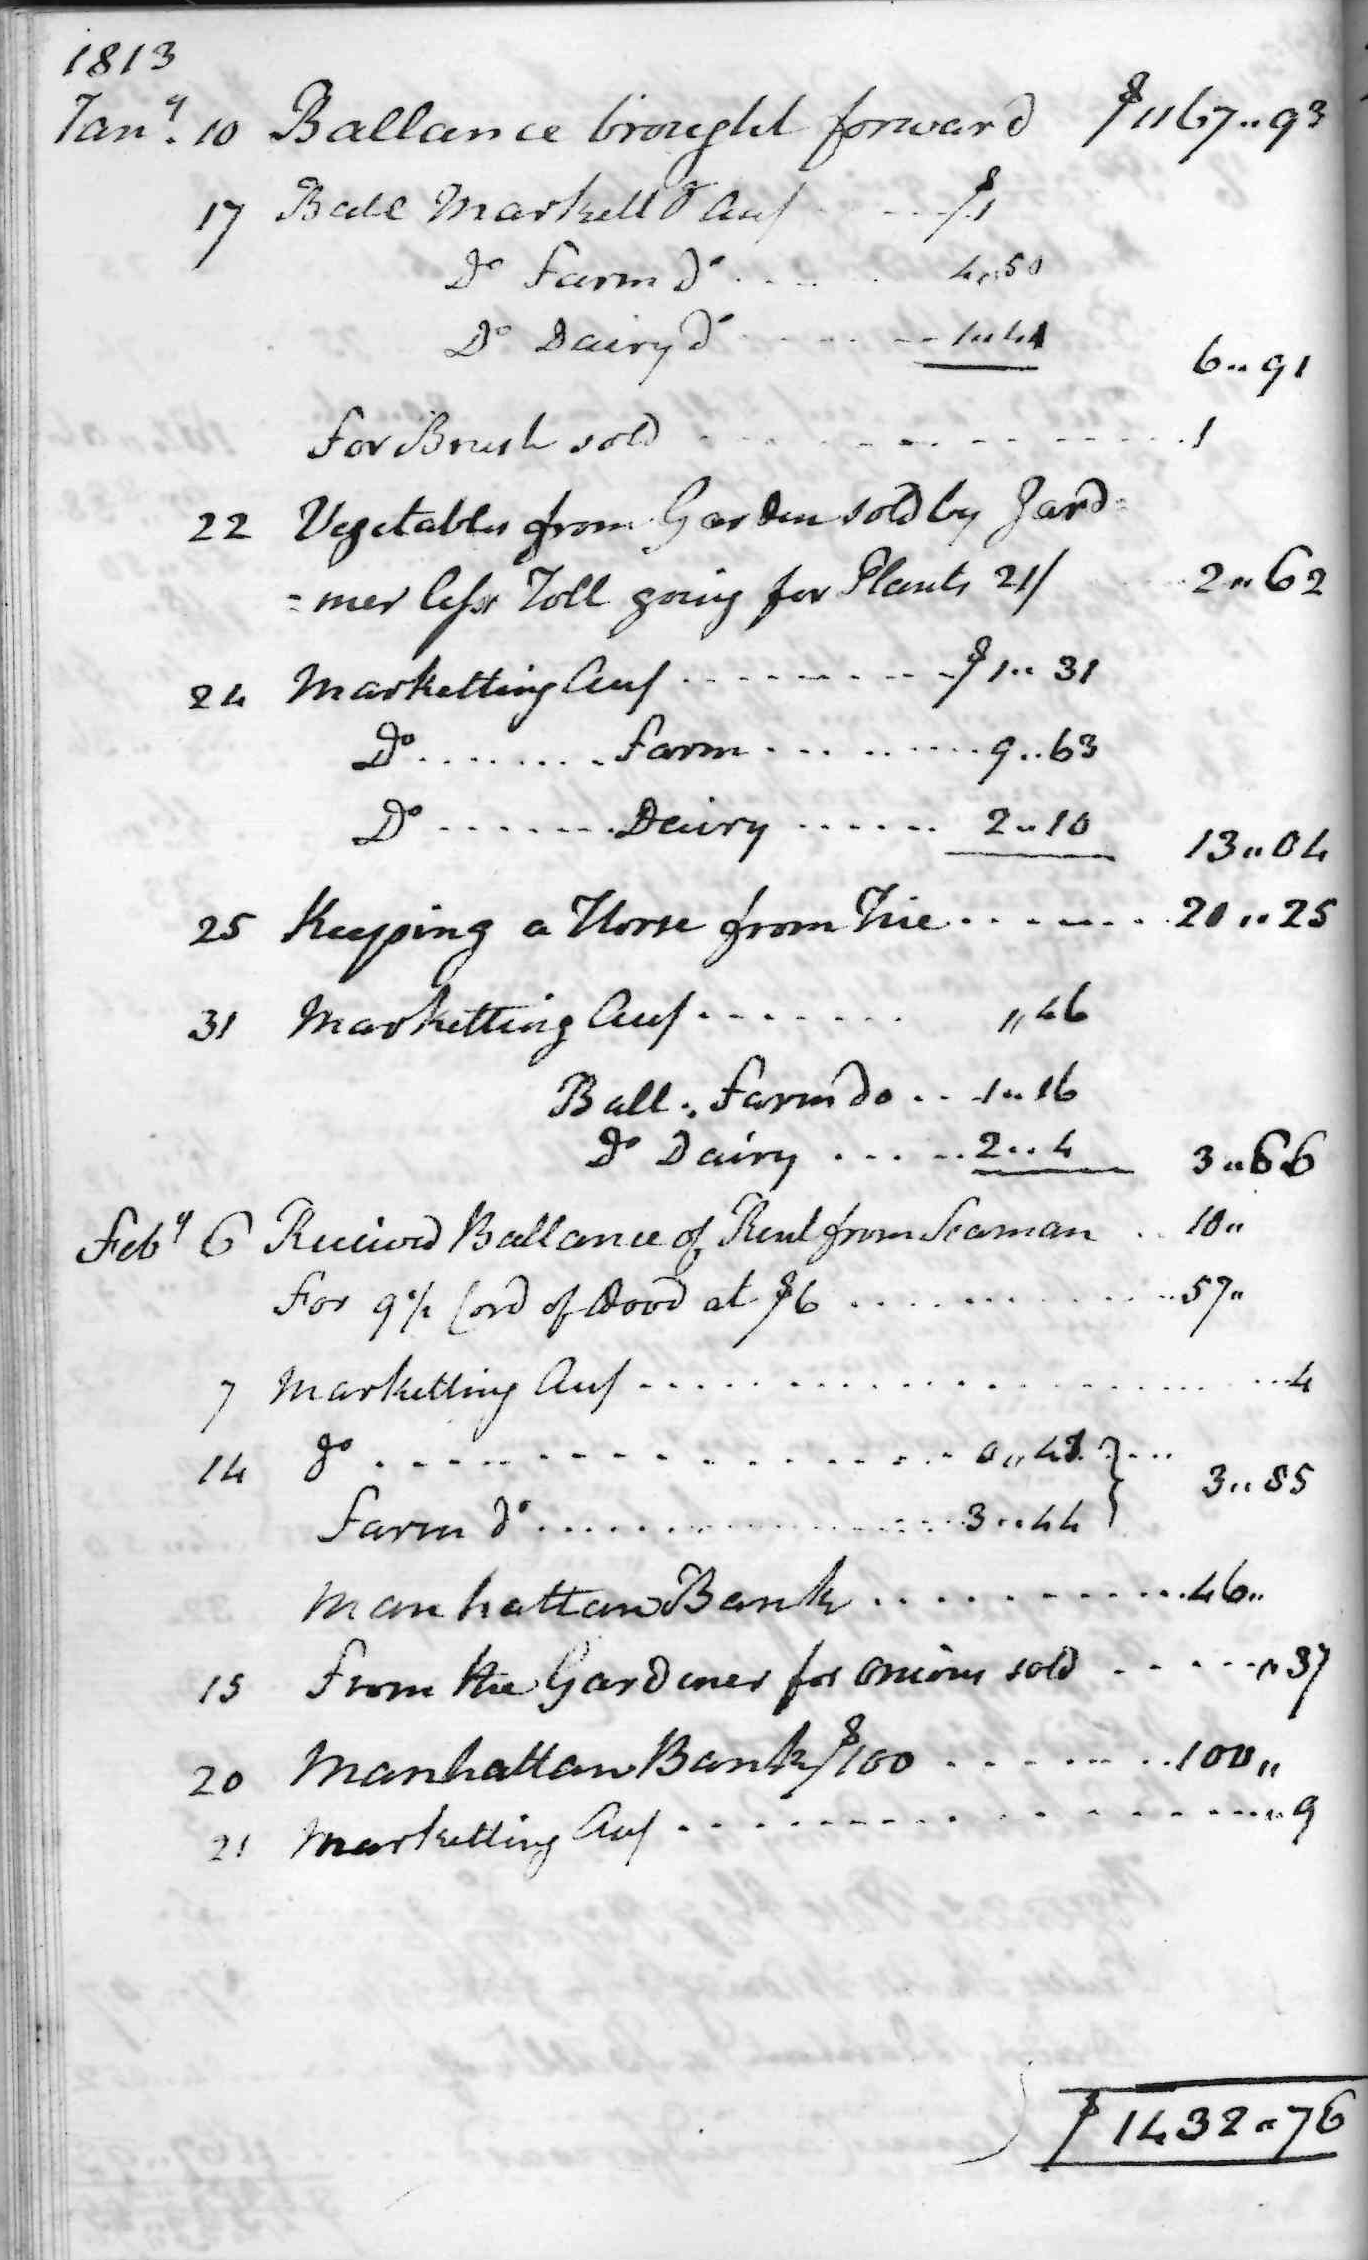 1813
Jany. 10 Ballance brought forward $1167..93
17 Ball Markett g Auf $1
Do Farm do 4..50
Do Dairy do 1..41
6..91
For Brush sold 1
22 Vegetables from Garden sold by Gard=
=ner less Toll going for Plants 21/ 2..62
24 Marketting Auf $1..31
Do Farm 9..63
Do Dairy 2..10
13..04
25 Keeping a Horse from Tue 20..25
31 Marketting Auf ,,46
Ball. Farm do 1..16
Do Dairy 2..4
3..66
Feby 6 Received Ballance of Rent from Seaman 10..
For 9½ Cord of Wood at $6 57..
7 Marketting Auf 4
14 do 0,,41
3..85
Farm do 3..44
Manhattan Bank 46..
15 From the Gardener for onions sold ..37
20 Manhattan Bank $100 100,,
21 Marketting Auf ..9
$1432..76